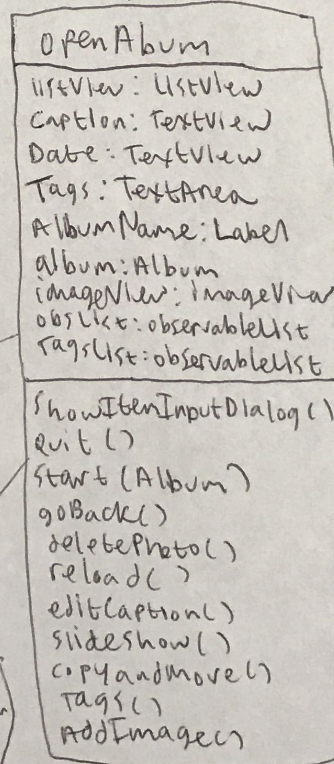 openAlbum
listView: ListView
Caption: TextView
Date: TextView
Tags: TextArea
AlbumName: Label
album: Album
imageView: imageView
obsList: observableList
TagsList: observableList
showItemInputDialog()
quit()
start(Album)
goBack()
deletePhoto()
reload()
editCaption()
slideshow()
copyandMove()
Tags()
AddImage()